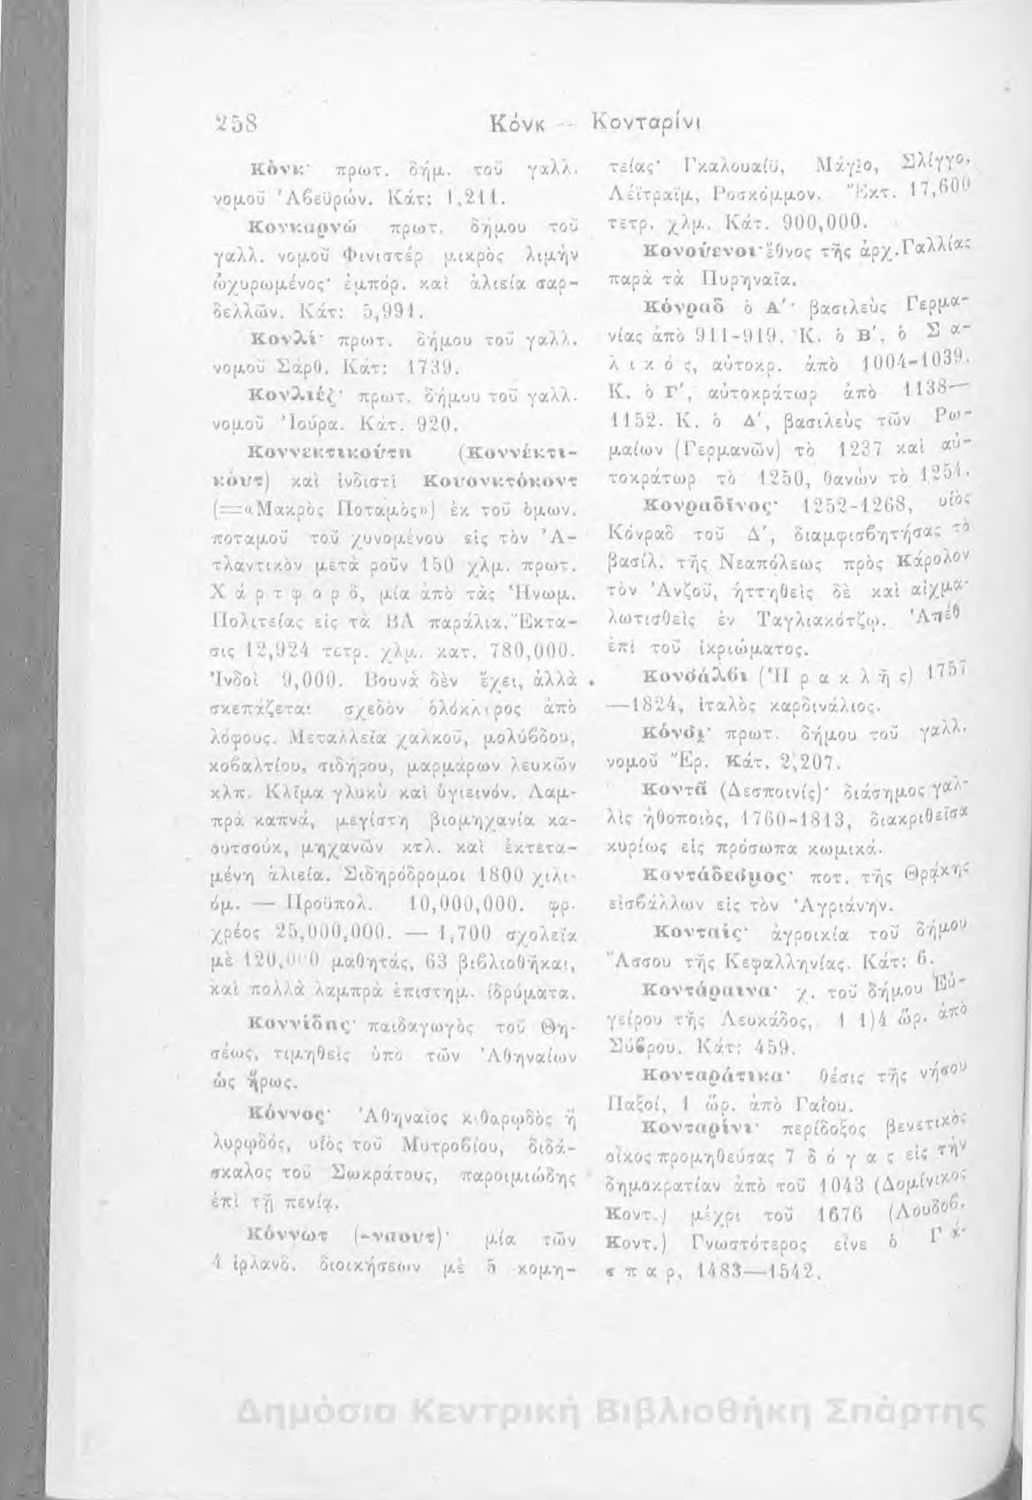 258
Κόνκ — Κονταρίνι
Κόνκ· πρωτ. δήμ. τοῦ γαλλ.
νομοῦ Ἀβεϋρών. Κάτ: 1,211.
Κονκαρνώ πρωτ. δήμου τοῦ
γαλλ. νομοῦ Φινιστέρ μικρὸς λιμὴν
ὠχυρωμένος· ἐμπόρ. καὶ ἁλιεία σαρ-
δελλῶν. Κάτ: 5,991.
Κονλί· πρωτ. δήμου τοῦ γαλλ.
νομοῦ Σάρθ. Κάτ: 1739.
Κονλιέζ· πρωτ. δήμου τοῦ γαλλ.
νομοῦ Ἰούρα. Κάτ. 920.
Κοννεκτικούτη (Κοννέκτι-
κόυτ) καὶ ἰνδιστὶ Κουονκτόκοντ
(=«Μακρὸς Ποταμὸς») ἐκ τοῦ ὁμων.
ποταμοῦ τοῦ χυνομένου εἰς τὸν Ἀ-
τλαντικὸν μετὰ ροῦν 150 χλμ. πρωτ.
Χάρτφορδ, μία ἀπὸ τὰς Ἡνωμ.
Πολιτείας εἰς τὰ ΒΑ παράλια. Ἔκτα-
σις 12,924 τετρ. χλμ. κατ. 780,000.
Ἰνδοὶ 9,000. Βουνὰ δὲν ἔχει, ἀλλὰ
σκεπάζεται σχεδὸν ὁλόκληρος ἀπὸ
λόφους. Μεταλλεῖα χαλκοῦ, μολύβδου,
κοβαλτίου, σιδήρου, μαρμάρων λευκῶν
κλπ. Κλῖμα γλυκὺ καὶ ὑγιεινόν. Λαμ-
πρὰ καπνά, μεγίστη βιομηχανία κα-
ουτσούκ, μηχανῶν κτλ. καὶ ἐκτετα-
μένη ἁλιεία. Σιδηρόδρομοι 1800 χιλι-
όμ. — Προϋπολ. 10,000,000. φρ.
χρέος 25,000,000. — 1,700 σχολεῖα
μὲ 120,000 μαθητάς, 63 βιβλιοθῆκαι,
καὶ πολλὰ λαμπρὰ ἐπιστημ. ἱδρύματα.
Κοννίδης· παιδαγωγὸς τοῦ Θη-
σέως, τιμηθεὶς ὑπὸ τῶν Ἀθηναίων
ὡς ἥρως.
Κόννος· Ἀθηναῖος κιθαρῳδὸς ἢ
λυρῳδός, υἱὸς τοῦ Μυτροβίου, διδά-
σκαλος τοῦ Σωκράτους, παροιμιώδης
ἐπὶ τῇ πενίᾳ.
Κόννωτ (-νάουτ)· μία τῶν
4 ἰρλανδ. διοικήσεων μὲ 5 κομη-
τείας· Γκαλουαίϋ, Μάγιο, Σλίγγο,
Λέϊτραϊμ, Ροσκόμμον. Ἔκτ. 17,600
τετρ. χλμ. Κάτ. 900,000.
Κονούενοι· ἔθνος τῆς ἀρχ. Γαλλίας
παρὰ τὰ Πυρηναῖα.
Κόνραδ ὁ Α΄· βασιλεὺς Γερμα-
νίας ἀπὸ 911-919. Κ. ὁ Β΄, ὁ Σα-
λικός, αὐτοκρ. ἀπὸ 1004-1039.
Κ. ὁ Γ΄, αὐτοκράτωρ ἀπὸ 1138—
1152. Κ. ὁ Δ΄, βασιλεὺς τῶν Ρω-
μαίων (Γερμανῶν) τὸ 1237 καὶ αὐ-
τοκράτωρ τὸ 1250, θανὼν τὸ 1254.
Κονραδῖνος· 1252-1268, υἱὸς
Κόνραδ τοῦ Δ΄, διαμφισβητήσας τὸ
βασίλ. τῆς Νεαπόλεως πρὸς Κάρολον
τὸν Ἀνζοῦ, ἡττηθεὶς δὲ καὶ αἰχμα-
λωτισθεὶς ἐν Ταγλιακότζῳ. Ἀπέθ
ἐπὶ τοῦ ἰκριώματος.
Κονσάλβι (Ἡρακλῆς) 1757
—1824, ἰταλὸς καρδινάλιος.
Κόνσι· πρωτ. δήμου τοῦ γαλλ.
νομοῦ Ἔρ. Κάτ. 2,207.
Κοντᾶ (Δεσποινίς)· διάσημος γαλ-
λὶς ἠθοποιὸς, 1760-1813, διακριθεῖσα
κυρίως εἰς πρόσωπα κωμικά.
Κοντάδεσμος· ποτ. τῆς Θράκης
εἰσβάλλων εἰς τὸν Ἀγριάνην.
Κονταίς· ἀγροικία τοῦ δήμου
Ἄσσου τῆς Κεφαλληνίας. Κάτ: 6.
Κοντάραινα· χ. τοῦ δήμου Εὐ-
γείρου τῆς Λευκάδος, 1 1)4 ὥρ. ἀπὸ
Σύβρου. Κάτ: 459.
Κονταράτικα· θέσις τῆς νήσου
Παξοί, 1 ὥρ. ἀπὸ Γαΐου.
Κονταρίνι· περίδοξος βενετικὸς
οἶκος προμηθεύσας 7 δόγας εἰς τὴν
δημοκρατίαν ἀπὸ τοῦ 1043 (Δομίνικος
Κοντ.) μέχρι τοῦ 1676 (Λουδοβ.
Κοντ.) Γνωστότερος εἶνε ὁ Γκ-
σπαρ, 1483—1542.
Δημόσια Κεντρική Βιβλιοθήκη Σπάρτης